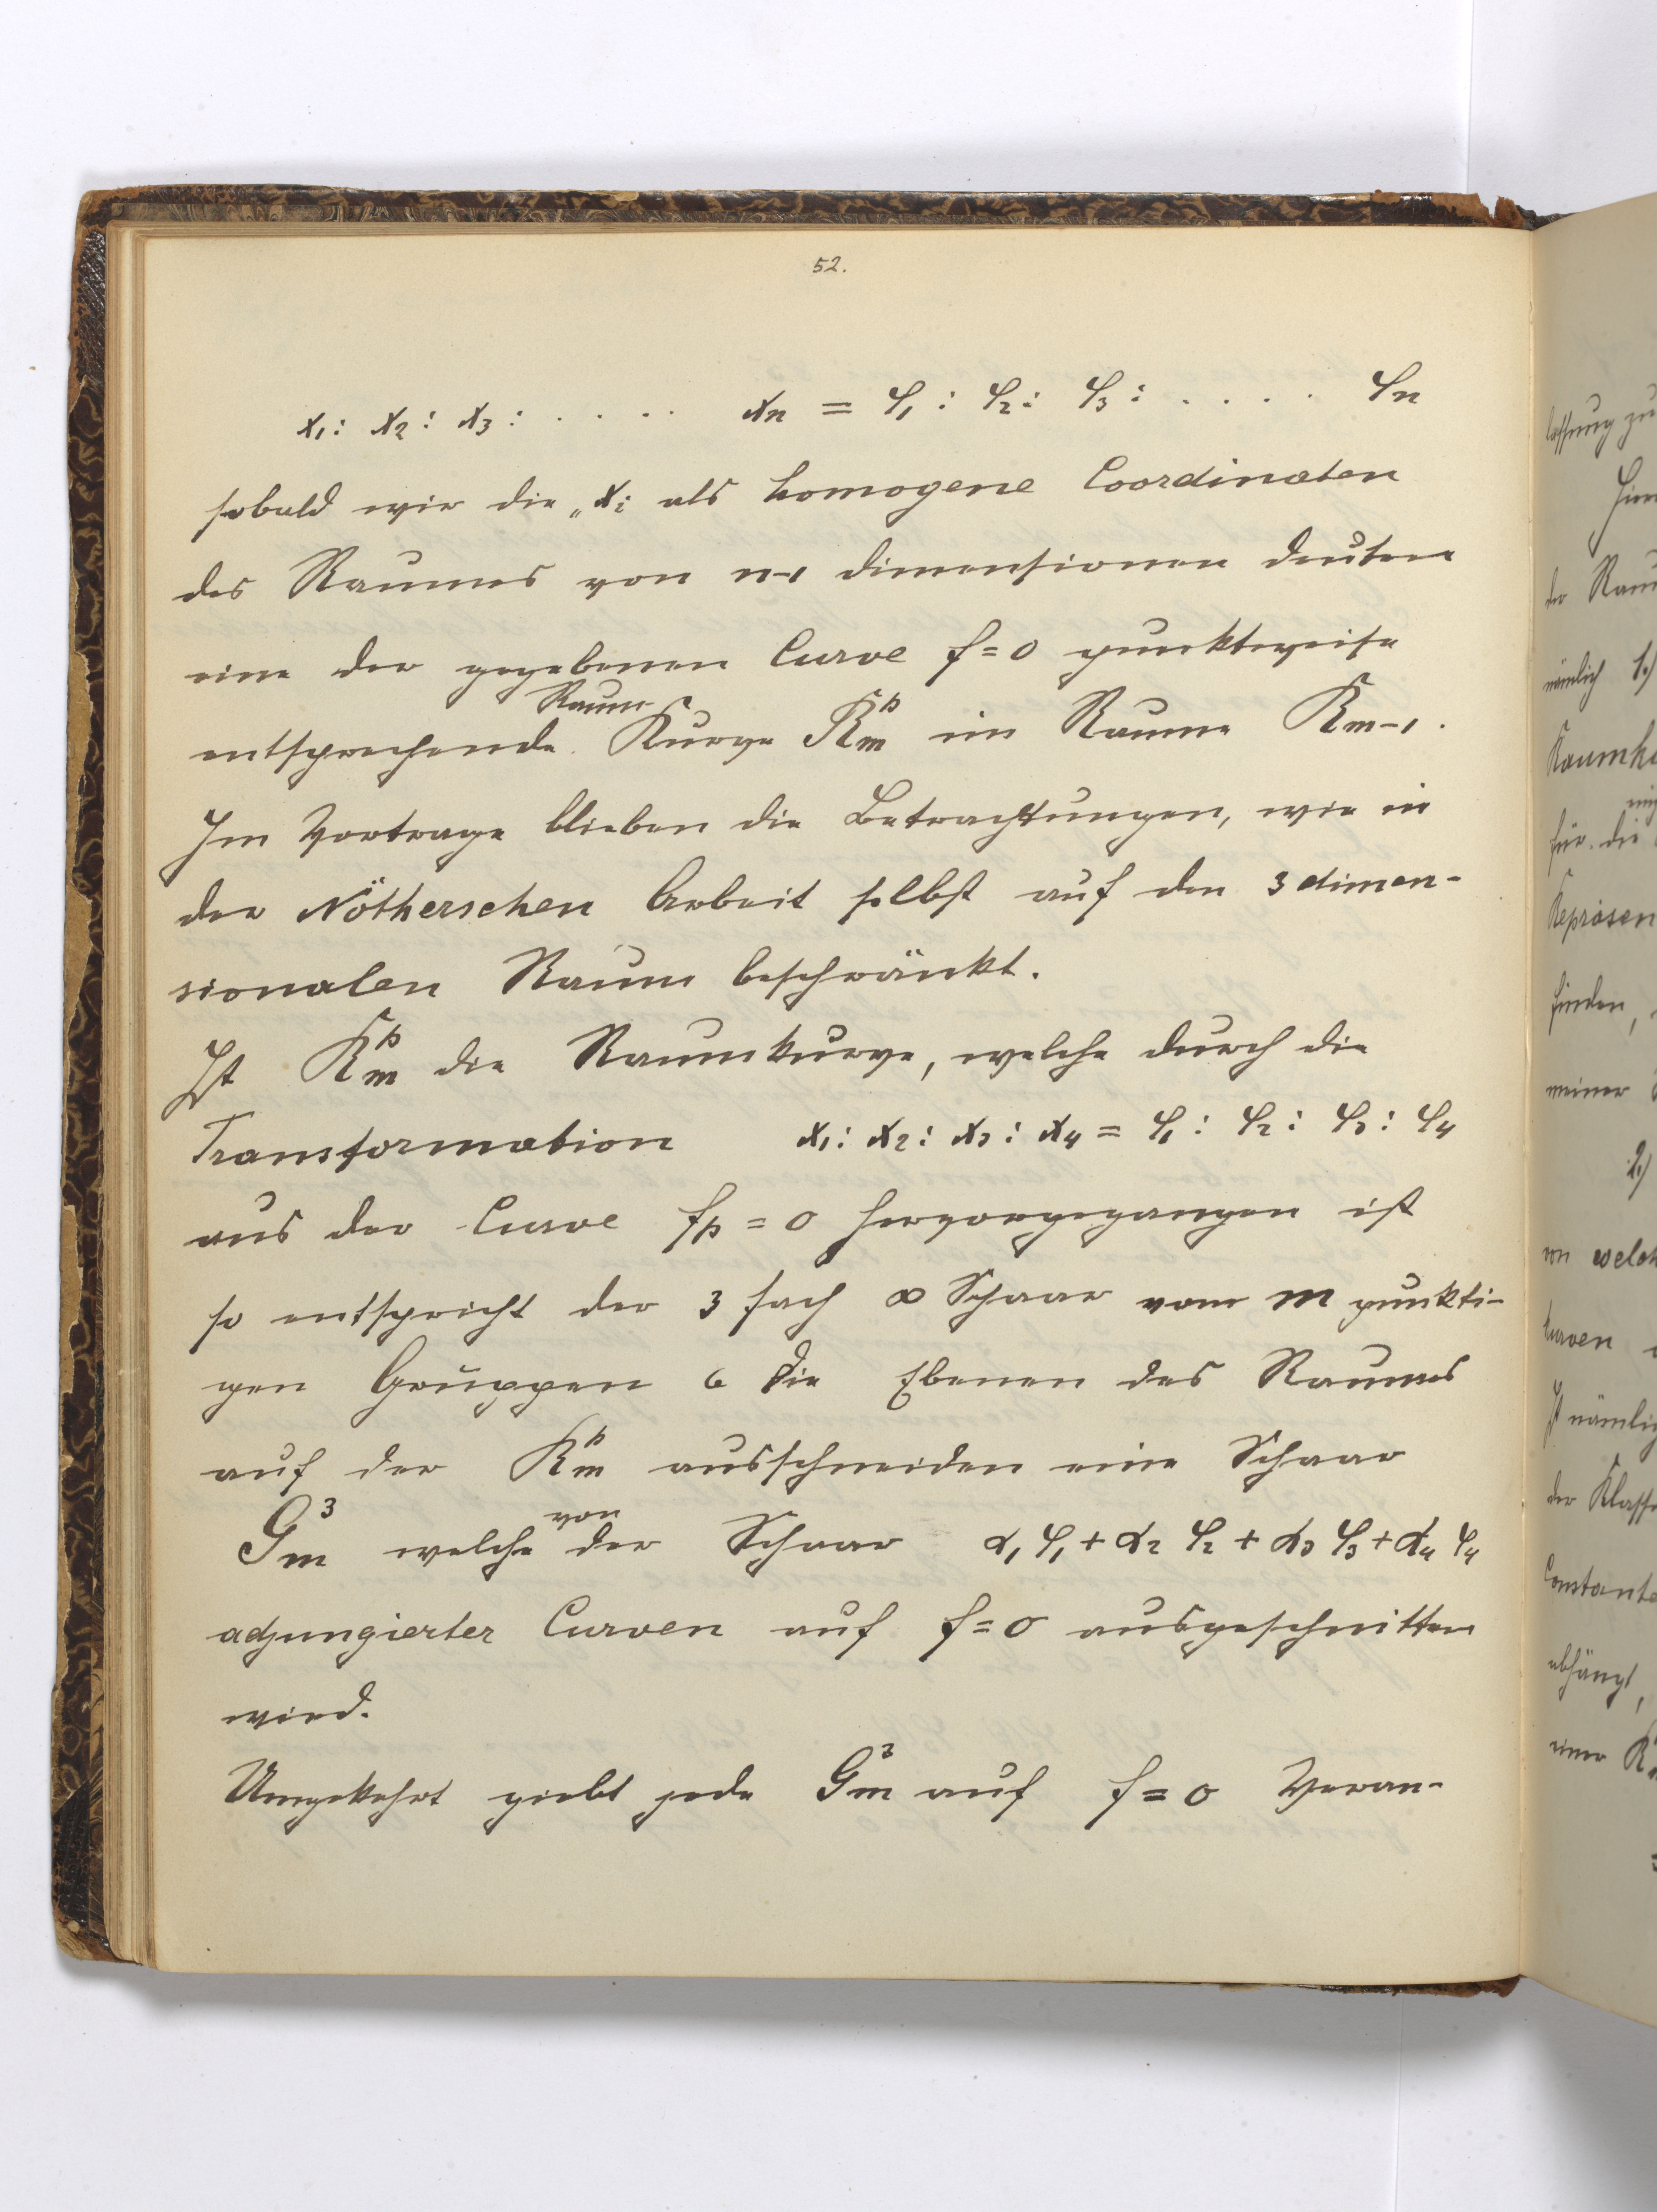 52.
x₁ : x₂ : x₃ : . . . . . xₙ = φ₁ : φ₂ : φ₃ : . . . . . φₙ
sobald wir die „xᵢ als homogene Coordinaten
des Raumes von n-1 dimensionen deuten
eine der gegebenen Curve f=0 punktweise
Raum
entsprechende Kurve Kₘᵖ im Raume Rₘ₋₁.
Im Vortrage blieben die Betrachtungen, wie in
der Nötherschen Arbeit selbst auf den 3 dimen-
sionalen Raum beschränkt.
Ist Kₘᵖ die Raumkurve, welche durch die
Transformation x₁ : x₂ : x₃ : x₄ = φ₁ : φ₂ : φ₃ : φ₄
aus der Curve fₚ = 0 hervorgegangen ist
so entspricht der 3 fach ∞ Schaar vom m punkti-
gen Gruppen die Ebenen des Raumes
auf der Kₘᵖ ausschneiden eine Schaar
von
Gₘ³ welche der Schaar α₁φ₁ + α₂φ₂ + α₃φ₃ + α₄φ₄
adjungierter Curven auf f=0 ausgeschnitten
wird.
Umgekehrt giebt jede Gₘ³ auf f=0 Veran-
lassung zu
der
nämlich 1.)
für die
finden,
meiner
2.)
von
der
abhängt,
einer